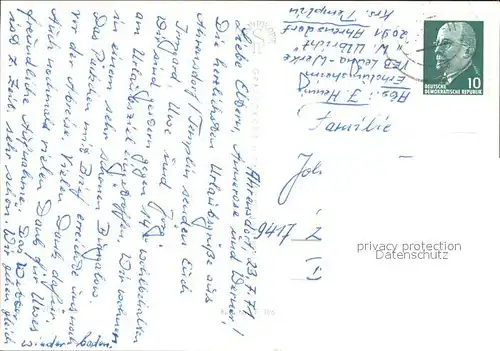 Ahrensdorf, 23.7.71
Liebe Eltern, Annerose und Werner!
Die herzlichsten Urlaubsgrüße aus
Ahrensdorf/Templin senden Euch
Irmgard, Uwe und Jörg.
Wir sind gestern gegen 14⁰⁰ wohlbehalten
am Urlaubsziel eingetroffen. Wir wohnen
in einem sehr schönen Bungalow.
Das Päckchen mit Brief erreichte uns noch
vor der Abreise. Vielen Dank dafür.
Auch nochmals vielen Dank für Uwes
freundliche Aufnahme. Das Wetter
ist z. Zeit sehr schön. Wir gehen gleich
wieder baden.
Abs.: J. Henni
Erholungsheim
VEB Leuna-Werke
"W. Ulbricht"
2091 Ahrensdorf
Krs. Templin
DEUTSCHE
DEMOKRATISCHE REPUBLIK
10
Familie
Joh
9417 Z
privacy protection
watermark